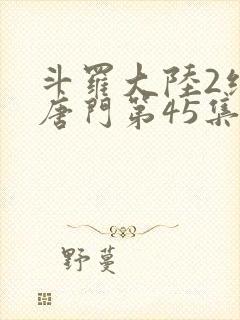 斗羅大陸2絕
唐門第45集
野蔓